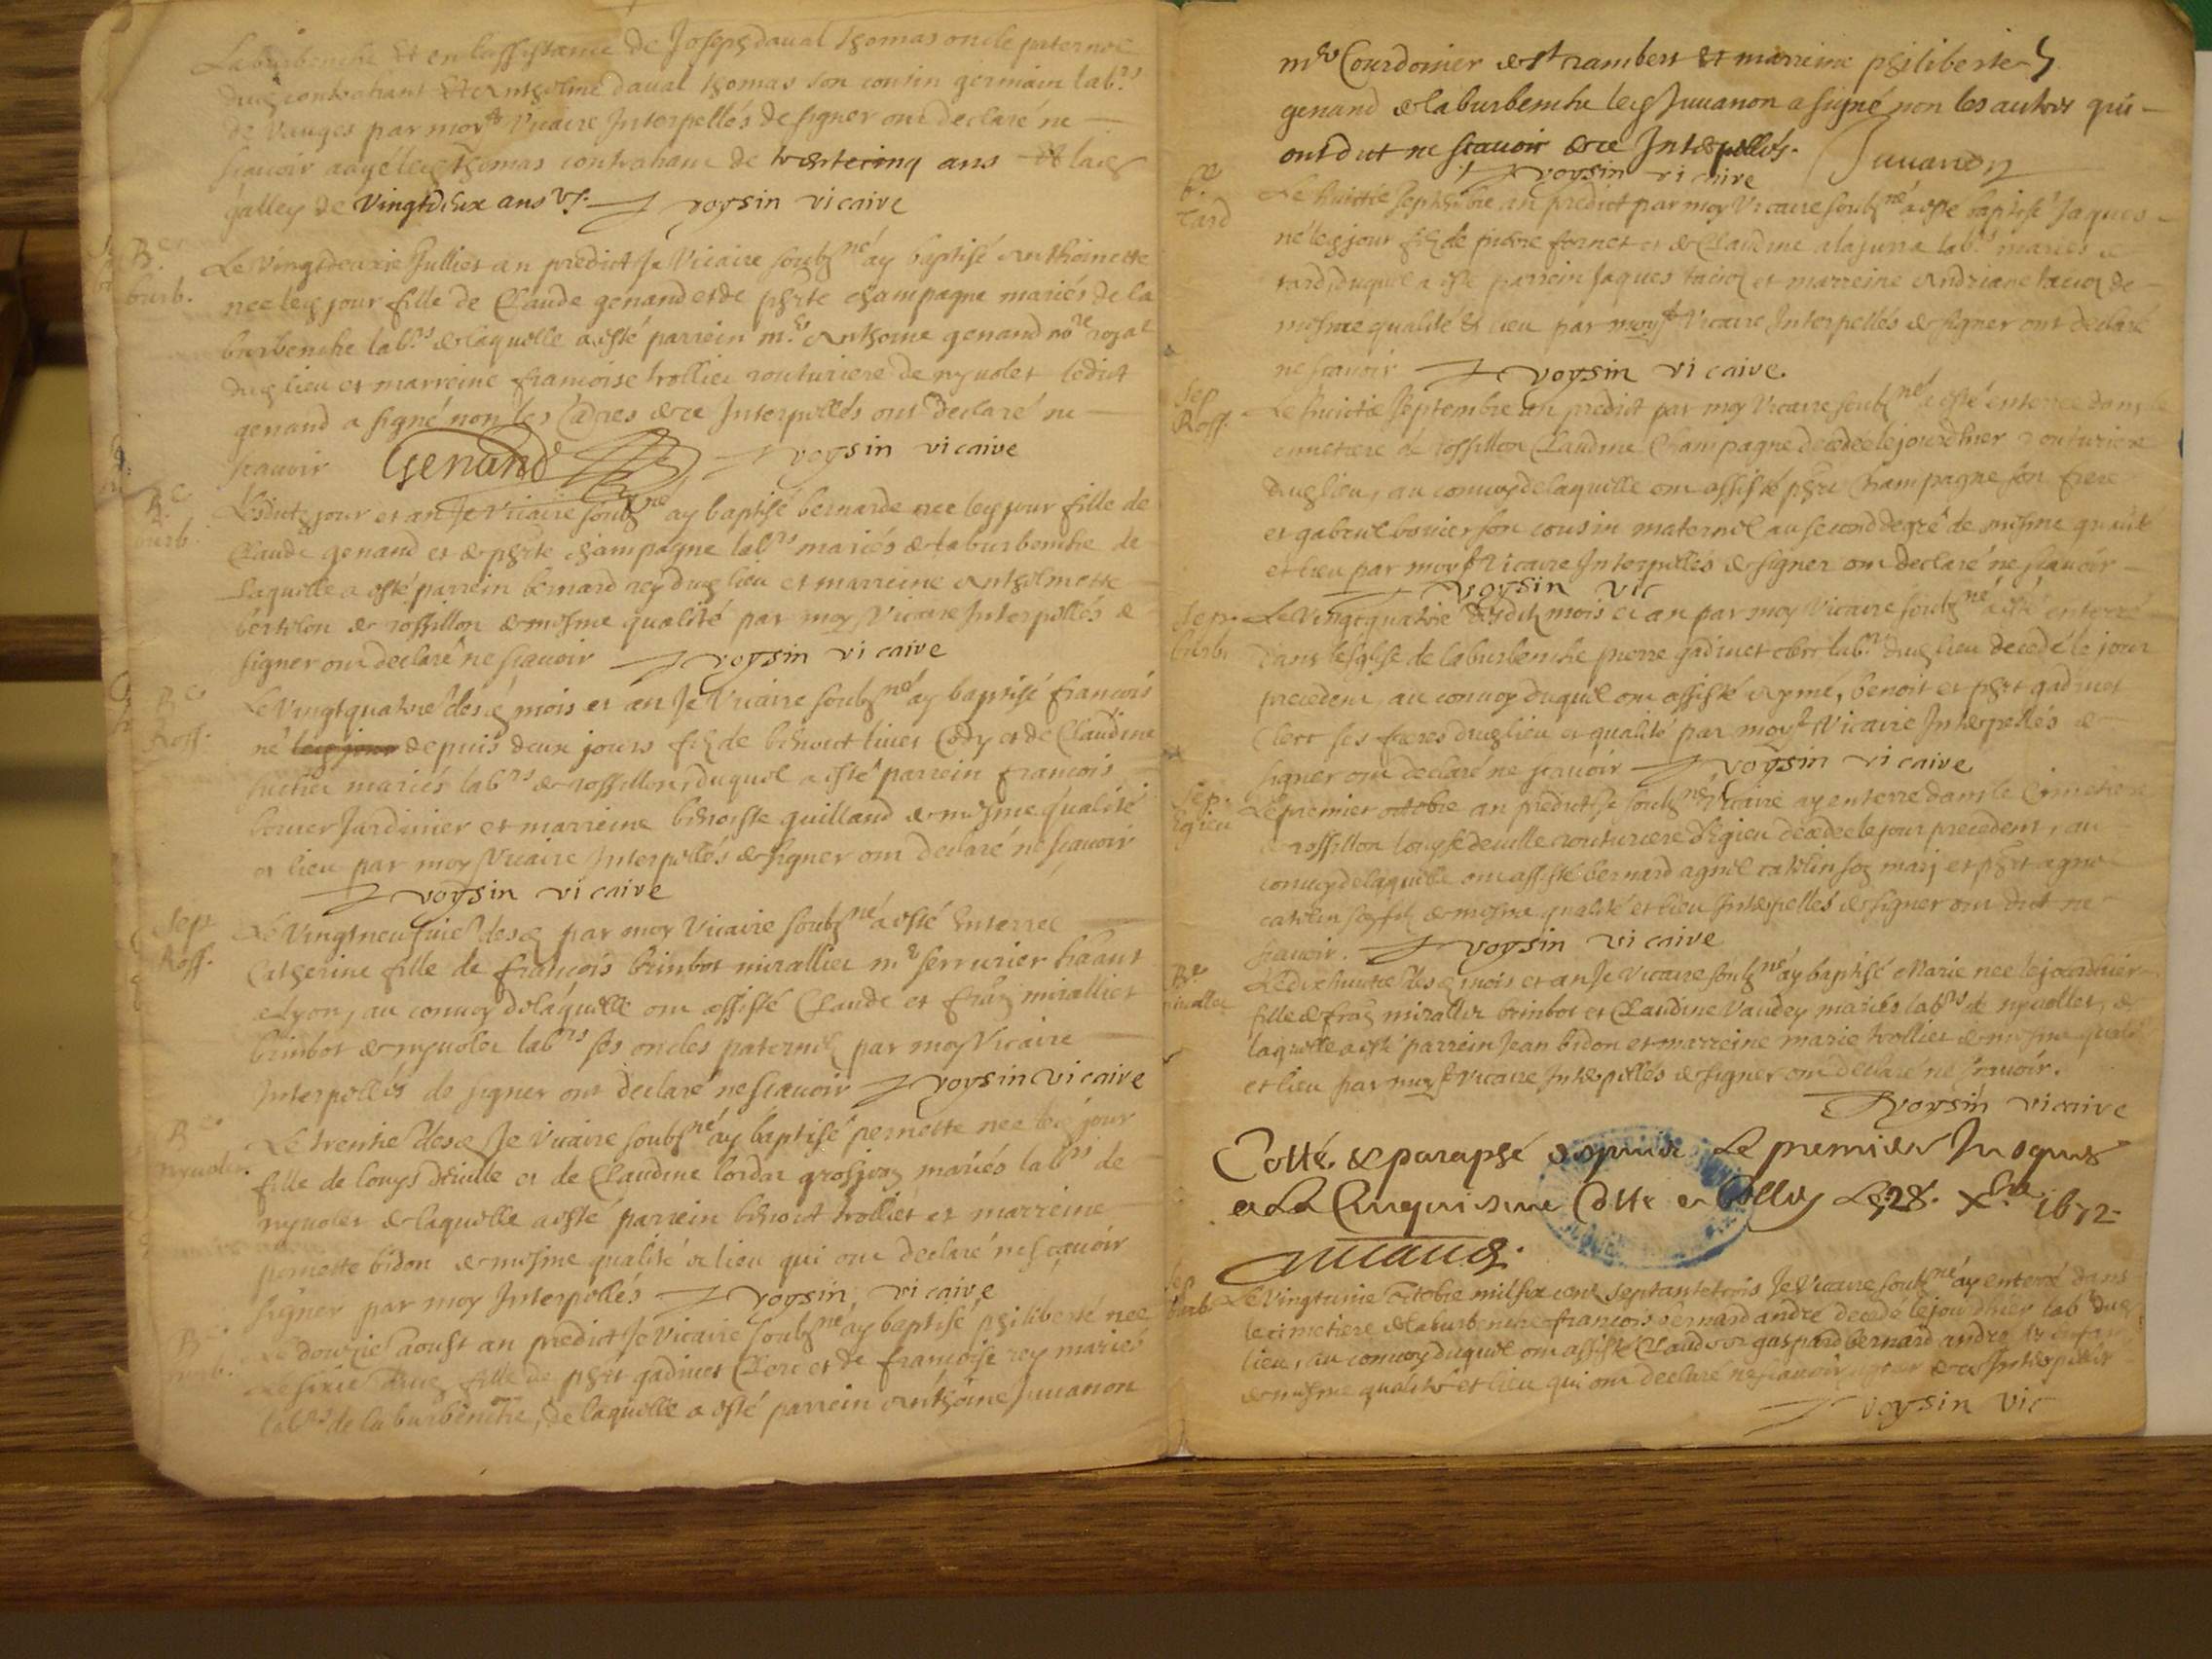 Laburbenche Et en lassistance de Joseph daval thomas oncle paternel
dud contrahant Et Anthelme daval thomas son cousin germain labrs
de Vauges par moy Vicaire Interpellés de signer ont declaré ne
scavoir aagé led thomas contrahant de trente cinq ans Et lad
galley de Vingtdeux ans voysin vicaire
Be
burb.
Le Vingtdeuxie Jullier an predict Je Vicaire soubsné ay baptisé Anthoinette
nee led jour fille de Claude genand et de phte champagne mariés de la
burbenche labrs de laquelle a esté parrein mr Anthoine genand nore royal
dud lieu et marreine francoise trollier routuriere de nyvolet ledict
genand a signé non les aultres de ce Interpellés ont declaré ne
scavoir Genand voysin vicaire
Be
burb.
Lesdits jour et an Je Vicaire soubsné ay baptisé bernarde nee led jour fille de
Claude genand et de phte champagne labrs mariés de laburbenche de
laquelle a esté parrein bernard rey dud lieu et marreine Anthelmette
bertelon de rossillon de mesme qualité par moy Vicaire Interpellés de
signer ont declaré ne scavoir voysin vicaire
Be
Ross.
Le Vingtquatre desd mois et an Je Vicaire soubsné ay baptisé francois
né led jour depuis deux jours fils de benoict et de Claudine
mariés labrs de rossillon, duquel a esté parrein francois
Jardinier et marreine benoiste quilland de mesme qualité
et lieu par moy Vicaire Interpellés de signer ont declaré ne scavoir
voysin vicaire
Sep
Ross.
Le Vingtneufvie desd par moy Vicaire soubsné a esté Enterree
Catherine fille de francois brimbot mirallier mr serrurier
a Lyon, au convoy de laquelle ont assisté Claude et fras mirallier
brimbot de nyvolet labrs ses oncles paternels par moy Vicaire
Interpellés de signer ont declaré ne scavoir voysin vicaire
Be
nyvolet.
Le trentie desd Je Vicaire soubsné ay baptisé pernette nee led jour
fille de louys deville et de Claudine mariés labrs de
nyvolet de laquelle a esté parrein benoict trollier et marreine
pernette bidon de mesme qualité et lieu qui ont declaré ne scavoir
signer par moy Interpellés voysin vicaire
Be
burb.
Le douzie aoust an predict Je Vicaire soubsné ay baptisé philiberte nee
le sixie dud fille de phrt gadinet Clerc et de francoise rey mariés
labrs de laburbenche, de laquelle a esté parrein Anthoine Juvanon
mre Courdonier de st rambert Et marreine philiberte
genand de laburbenche led Juvanon a signé non les autres qui
ont dict ne scavoir de ce Interpellés. Juvanon
voysin vicaire
Be
Tard
Le huictie Septembre an predict par moy Vicaire soubsné a esté baptisé Jaques
né led jour fils de pierre fornet et de Claudine labrs mariés
tard, duquel a esté parrein Jaques et marreine Andriane de
mesme qualité et lieu par moy Vicaire Interpellés de signer ont declaré
ne scavoir voysin vicaire.
Sep
Ross.
Le huictie Septembre an predict par moy Vicaire soubsné a esté enterree dans le
cimetiere de rossillon Claudine Champagne decedee le jourdhier routuriere
dud lieu, au convoy de laquelle ont assisté phrt Champagne son frere
et gabriel bovier son cousin maternel au second degré de mesme qualité
et lieu par moy Vicaire Interpellés de signer ont declaré ne scavoir
voysin vic
Sep.
burb.
Le Vingtquatrie desdits mois et an par moy Vicaire soubsné a esté enterré
dans lesglise de laburbenche pierre gadinet clerc labr dud lieu decedé le jour
precedent, au convoy duquel ont assisté Aymé, benoit et phrt gadinet
Clerc ses freres dud lieu et qualité par moy Vicaire Interpellés de
signer ont declaré ne scavoir voysin vicaire
Sep.
Egieu
Le premier octobre an predict Je soubsné Vicaire ay enterre dans le Cimetiere
de rossillon louyse deville routuriere dEgieu decedee le jour precedent, au
convoy de laquelle ont assisté bernard agniel catelin son mary et phrt agniel
catelin son fils de mesme qualité et lieu Interpellés de signer ont dict ne
scavoir. voysin vicaire
Be
nivollet
Le dixhuictie desd mois et an Je Vicaire soubsné ay baptisé Marie nee le jourdhier
fille de fras mirallier brimbot et Claudine Vaudey mariés labrs de nyvollet, de
laquelle a esté parrein Jean bidon et marreine marie trollier de mesme qualité
et lieu par moy Vicaire Interpellés de signer ont declaré ne scavoir.
voysin vicaire
Cotté & paraphé depuis Le premier Jusques
a La Cinquiesme Cotte a Belley Le 28. Xbre 1672
burb.
Le Vingtunie Octobre mil six cent septantetrois Je Vicaire soubsné ay enterré dans
le cimetiere de laburbenche francois bernard andré decedé le jourdhier labr dud
lieu, au convoy duquel ont assisté Claude et gaspard bernard andré
de mesme qualité et lieu qui ont declaré ne scavoir signer de ce Interpellés
voysin vic